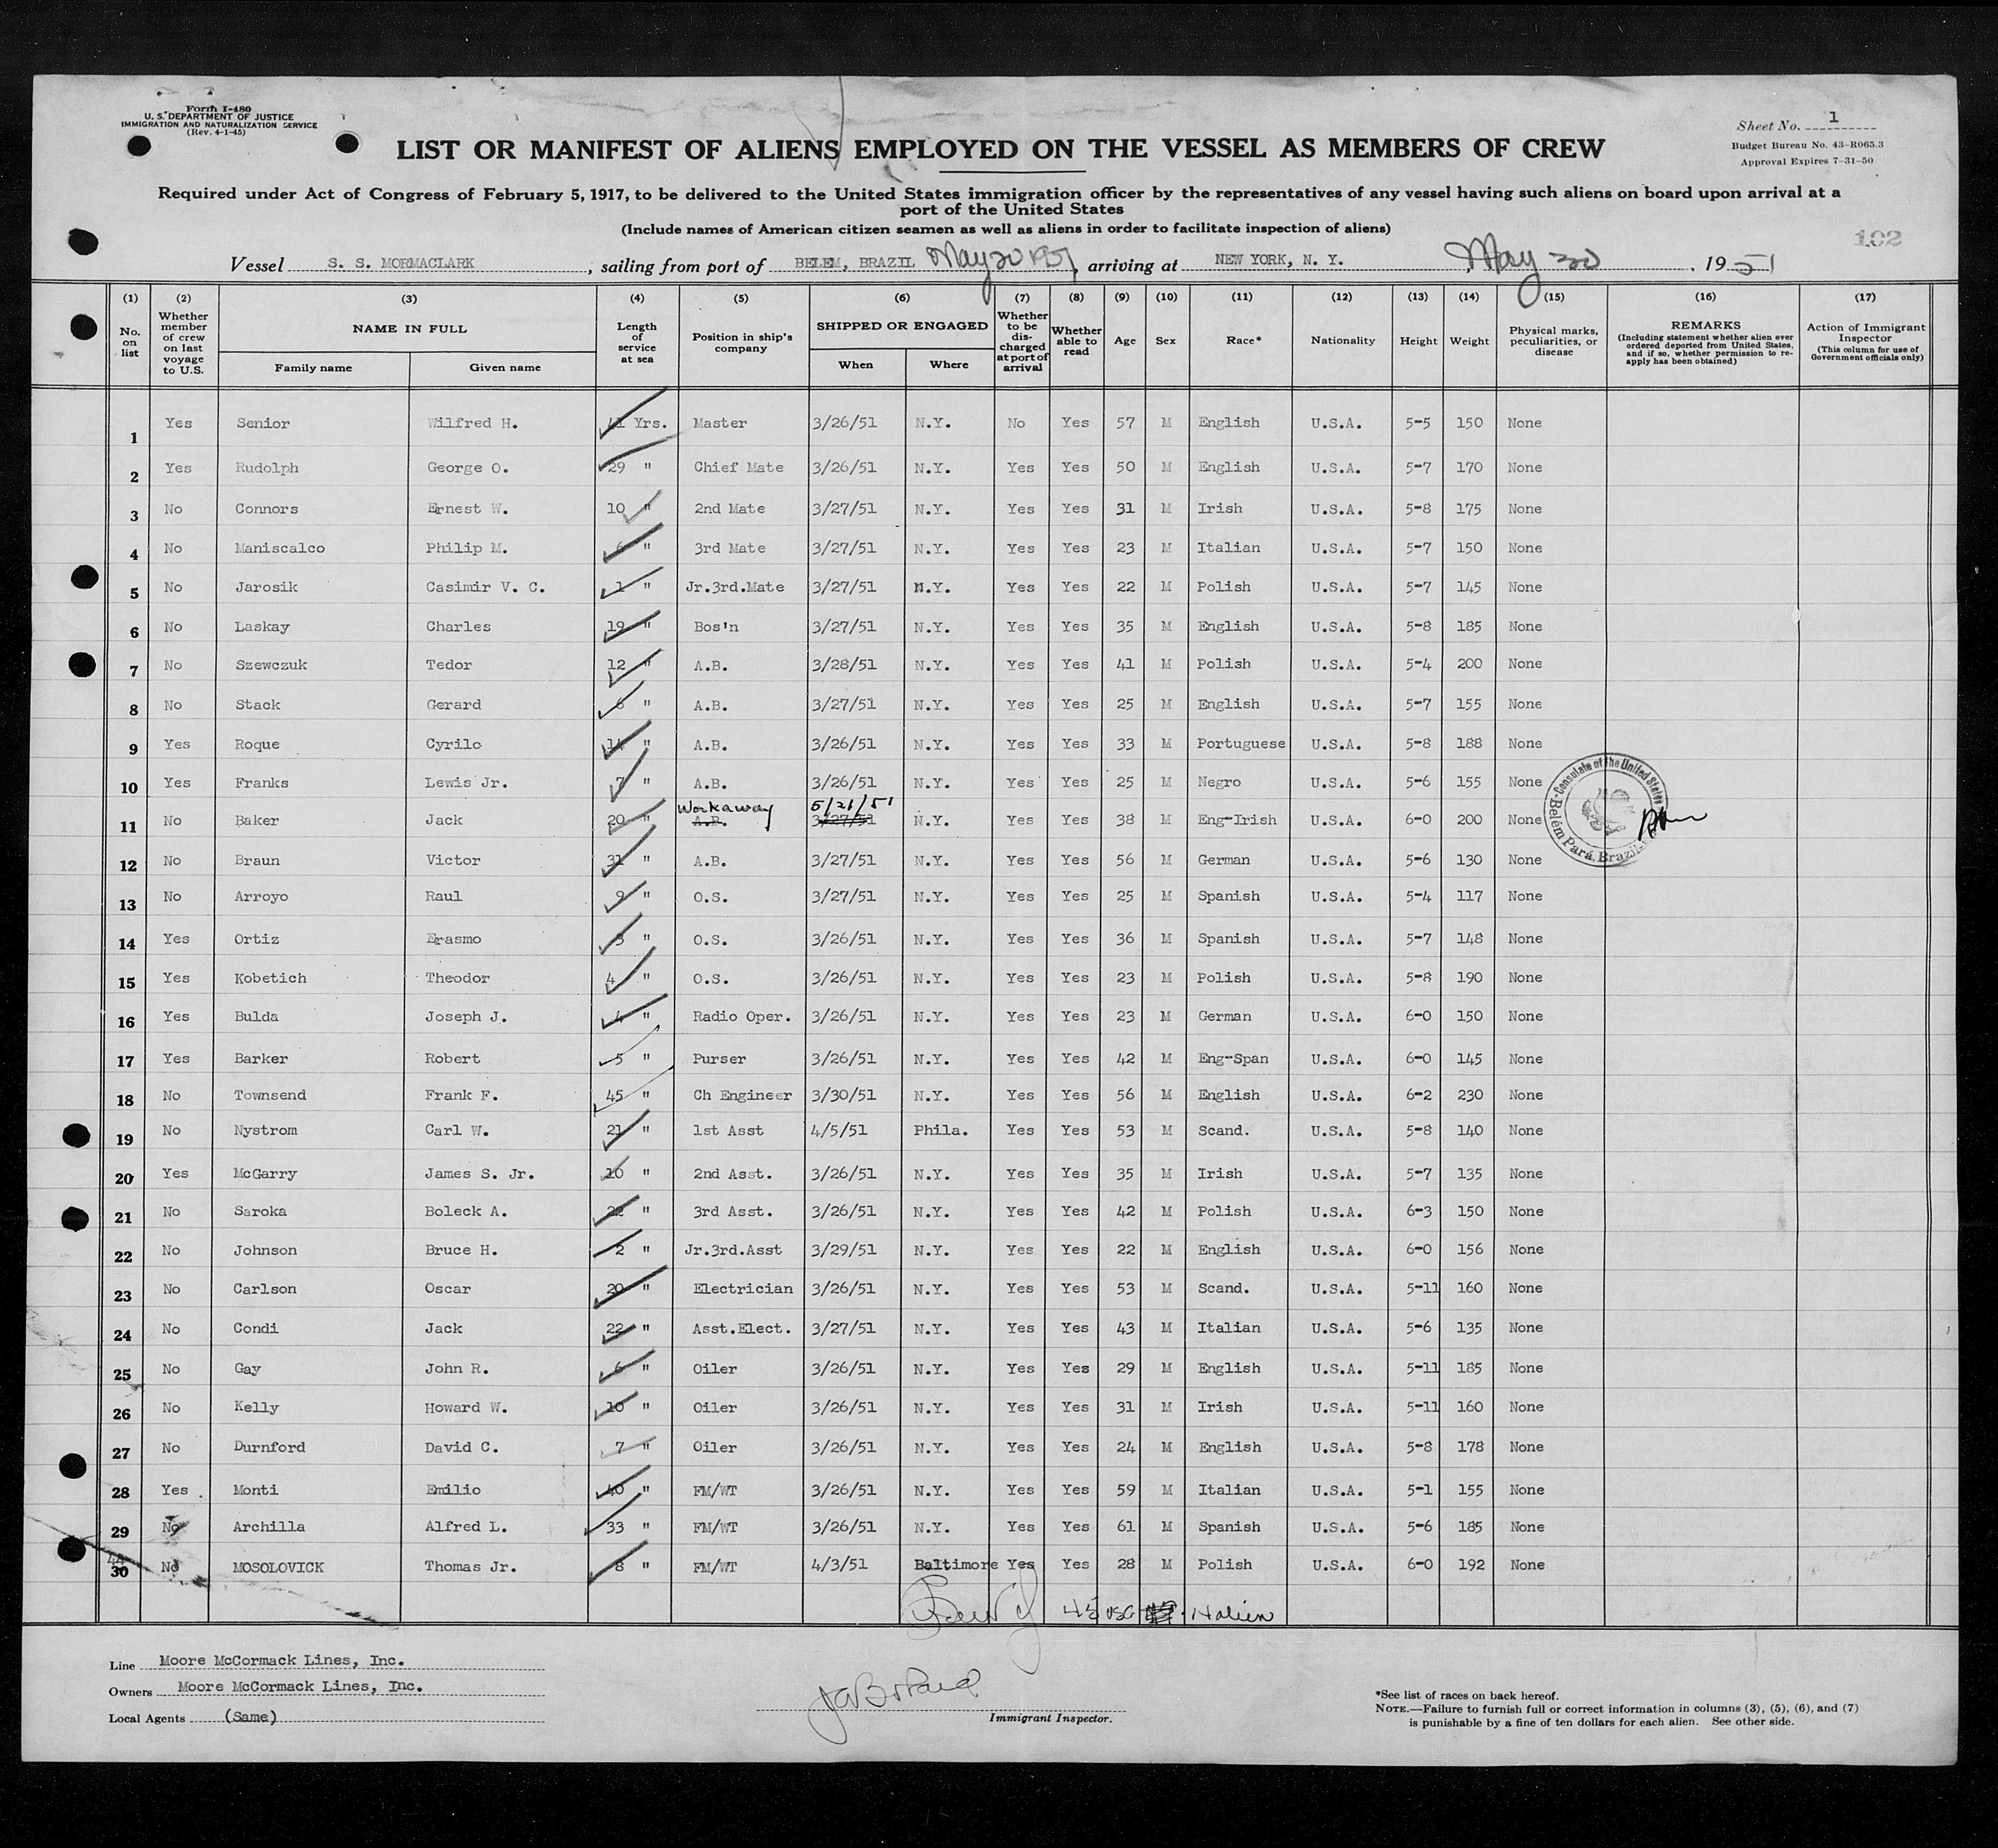 Form I-480
U. S. DEPARTMENT OF JUSTICE
IMMIGRATION AND NATURALIZATION SERVICE
(Rev. 4-1-45)
Sheet No. 1
Budget Bureau No. 43-R065.3
Approval Expires 7-31-50
LIST OR MANIFEST OF ALIENS EMPLOYED ON THE VESSEL AS MEMBERS OF CREW
Required under Act of Congress of February 5, 1917, to be delivered to the United States immigration officer by the representatives of any vessel having such aliens on board upon arrival at a
port of the United States
(Include names of American citizen seamen as well as aliens in order to facilitate inspection of aliens)
102
Vessel S. S. MORMACLARK, sailing from port of BELEM, BRAZIL May 20 1951, arriving at NEW YORK, N. Y., May 30, 1951
(1) (2) (3) (4) (5) (6) (7) (8) (9) (10) (11) (12) (13) (14) (15) (16) (17)
No. on list
Whether member of crew on last voyage to U.S.
NAME IN FULL
Family name Given name
Length of service at sea
Position in ship's company
SHIPPED OR ENGAGED
When Where
Whether to be discharged at port of arrival
Whether able to read
Age Sex Race* Nationality Height Weight
Physical marks, peculiarities, or disease
REMARKS
(Including statement whether alien ever ordered deported from United States, and if so, whether permission to reapply has been obtained)
Action of Immigrant Inspector
(This column for use of Government officials only)
1 Yes Senior Wilfred H. 41 Yrs. Master 3/26/51 N.Y. No Yes 57 M English U.S.A. 5-5 150 None
2 Yes Rudolph George O. 29 " Chief Mate 3/26/51 N.Y. Yes Yes 50 M English U.S.A. 5-7 170 None
3 No Connors Ernest W. 10 " 2nd Mate 3/27/51 N.Y. Yes Yes 31 M Irish U.S.A. 5-8 175 None
4 No Maniscalco Philip M. 6 " 3rd Mate 3/27/51 N.Y. Yes Yes 23 M Italian U.S.A. 5-7 150 None
5 No Jarosik Casimir V. C. 1 " Jr.3rd.Mate 3/27/51 N.Y. Yes Yes 22 M Polish U.S.A. 5-7 145 None
6 No Laskay Charles 19 " Bos'n 3/27/51 N.Y. Yes Yes 35 M English U.S.A. 5-8 185 None
7 No Szewczuk Tedor 12 " A.B. 3/28/51 N.Y. Yes Yes 41 M Polish U.S.A. 5-4 200 None
8 No Stack Gerard 6 " A.B. 3/27/51 N.Y. Yes Yes 25 M English U.S.A. 5-7 155 None
9 Yes Roque Cyrilo 14 " A.B. 3/26/51 N.Y. Yes Yes 33 M Portuguese U.S.A. 5-8 188 None
10 Yes Franks Lewis Jr. 7 " A.B. 3/26/51 N.Y. Yes Yes 25 M Negro U.S.A. 5-6 155 None
Workaway 5/21/51
11 No Baker Jack 20 " A.B. 3/27/51 N.Y. Yes Yes 38 M Eng-Irish U.S.A. 6-0 200 None
Consulate of the United States
Belém Pará, Brazil
12 No Braun Victor 31 " A.B. 3/27/51 N.Y. Yes Yes 56 M German U.S.A. 5-6 130 None
13 No Arroyo Raul 9 " O.S. 3/27/51 N.Y. Yes Yes 25 M Spanish U.S.A. 5-4 117 None
14 Yes Ortiz Erasmo 3 " O.S. 3/26/51 N.Y. Yes Yes 36 M Spanish U.S.A. 5-7 148 None
15 Yes Kobetich Theodor 4 " O.S. 3/26/51 N.Y. Yes Yes 23 M Polish U.S.A. 5-8 190 None
16 Yes Bulda Joseph J. 4 " Radio Oper. 3/26/51 N.Y. Yes Yes 23 M German U.S.A. 6-0 150 None
17 Yes Barker Robert 5 " Purser 3/26/51 N.Y. Yes Yes 42 M Eng-Span U.S.A. 6-0 145 None
18 No Townsend Frank F. 45 " Ch Engineer 3/30/51 N.Y. Yes Yes 56 M English U.S.A. 6-2 230 None
19 No Nystrom Carl W. 21 " 1st Asst 4/5/51 Phila. Yes Yes 53 M Scand. U.S.A. 5-8 140 None
20 Yes McGarry James S. Jr. 10 " 2nd Asst. 3/26/51 N.Y. Yes Yes 35 M Irish U.S.A. 5-7 135 None
21 No Saroka Boleck A. 22 " 3rd Asst. 3/26/51 N.Y. Yes Yes 42 M Polish U.S.A. 6-3 150 None
22 No Johnson Bruce H. 2 " Jr.3rd.Asst 3/29/51 N.Y. Yes Yes 22 M English U.S.A. 6-0 156 None
23 No Carlson Oscar 20 " Electrician 3/26/51 N.Y. Yes Yes 53 M Scand. U.S.A. 5-11 160 None
24 No Condi Jack 22 " Asst.Elect. 3/27/51 N.Y. Yes Yes 43 M Italian U.S.A. 5-6 135 None
25 No Gay John R. 6 " Oiler 3/26/51 N.Y. Yes Yes 29 M English U.S.A. 5-11 185 None
26 No Kelly Howard W. 10 " Oiler 3/26/51 N.Y. Yes Yes 31 M Irish U.S.A. 5-11 160 None
27 No Durnford David C. 7 " Oiler 3/26/51 N.Y. Yes Yes 24 M English U.S.A. 5-8 178 None
28 Yes Monti Emilio 40 " FM/WT 3/26/51 N.Y. Yes Yes 59 M Italian U.S.A. 5-1 155 None
29 No Archilla Alfred L. 33 " FM/WT 3/26/51 N.Y. Yes Yes 61 M Spanish U.S.A. 5-6 185 None
44
30 No MOSOLOVICK Thomas Jr. 8 " FM/WT 4/3/51 Baltimore Yes Yes 28 M Polish U.S.A. 6-0 192 None
45 USC
Line Moore McCormack Lines, Inc.
Owners Moore McCormack Lines, Inc.
Local Agents (Same)
Immigrant Inspector.
*See list of races on back hereof.
NOTE.—Failure to furnish full or correct information in columns (3), (5), (6), and (7)
is punishable by a fine of ten dollars for each alien. See other side.